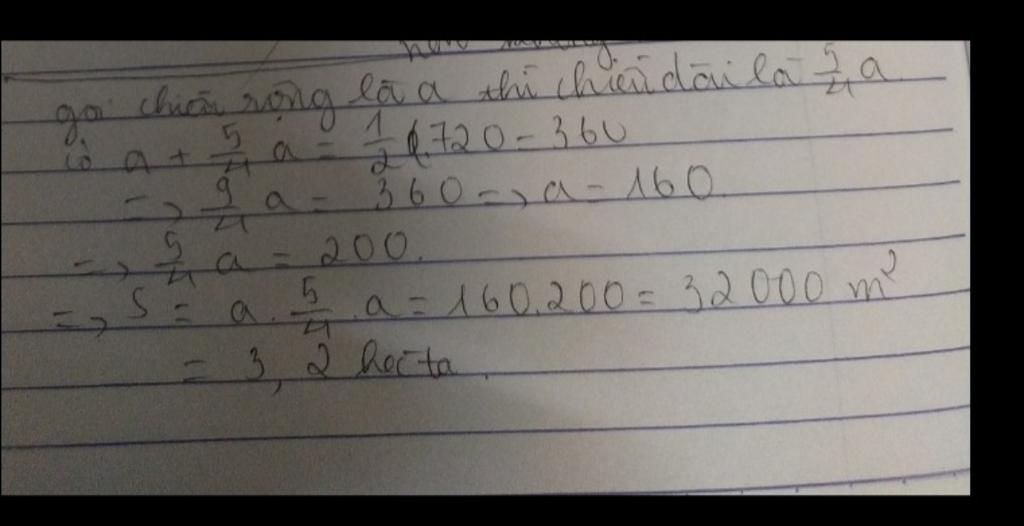 gọi chiều rộng là a thì chiều dài là 5/4 a
có a + 5/4 a = 1/2 .720 = 360
=> 9/4 a = 360 => a = 160
=> 5/4 a = 200.
=> S = a. 5/4 .a = 160.200 = 32000 m²
= 3,2 hecta.